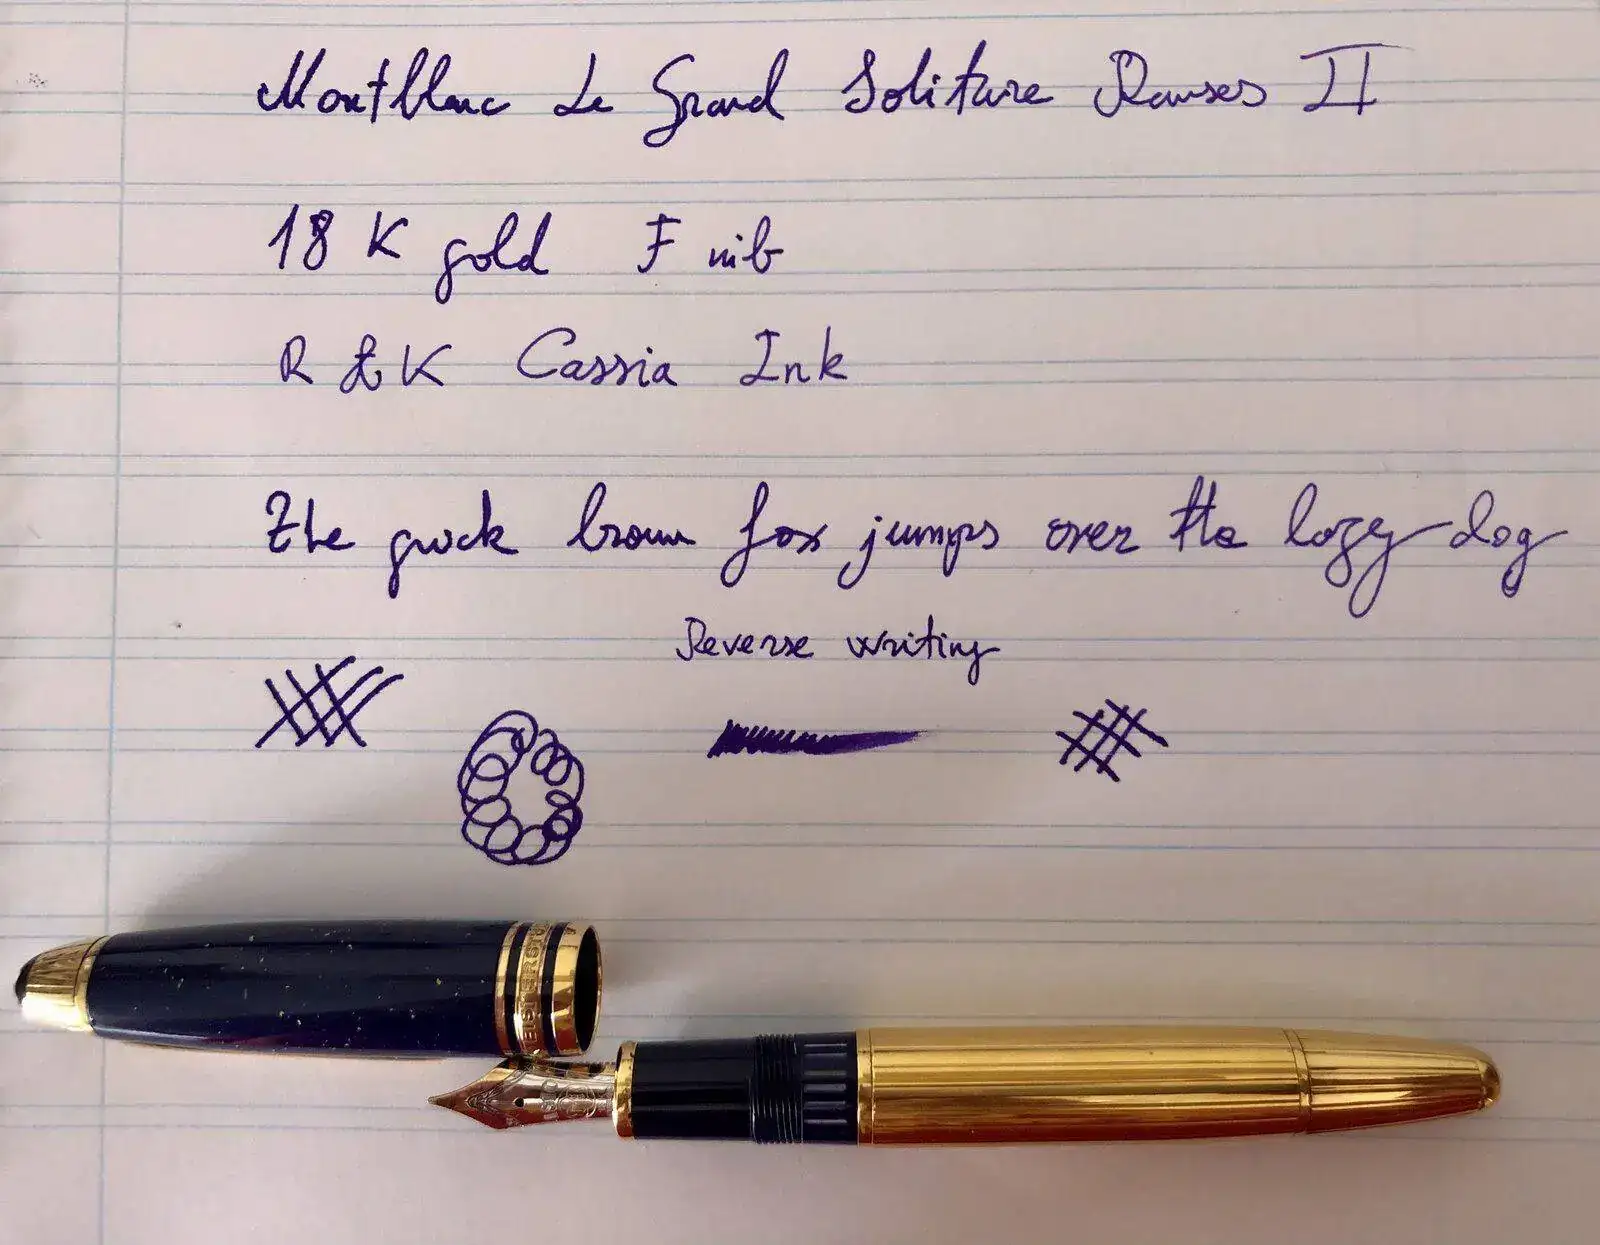 Montblanc Le Grand Solitaire Ramses II
18 K gold F nib
R & K Cassia Ink
The quick brown fox jumps over the lazy dog
Reverse writing